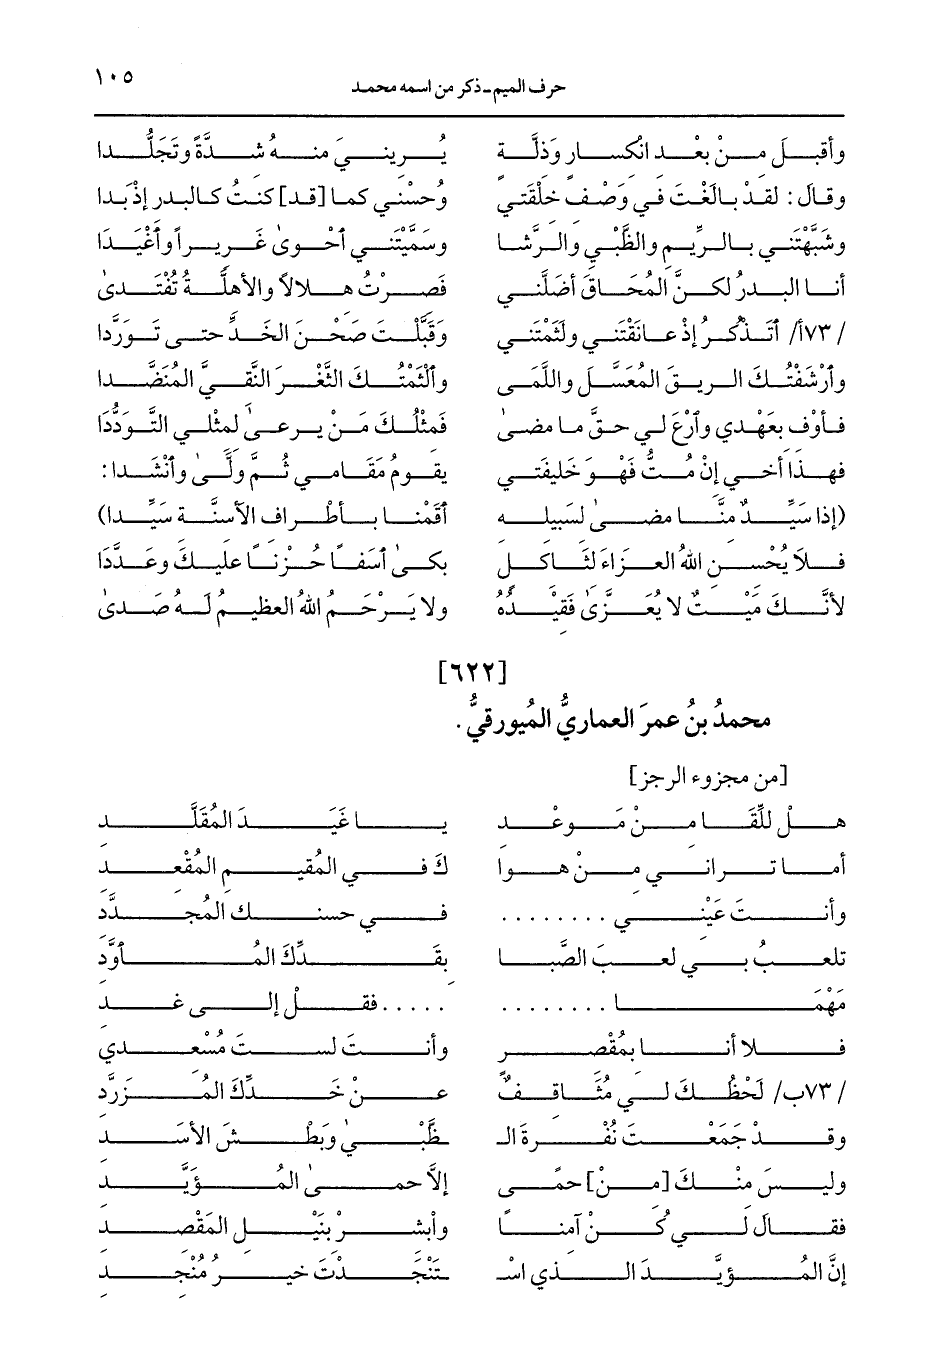 حرف الميم - ذكر من اسمه محمد ١٠٥
وأقبلَ منْ بعْد انْكسار وَذلَّة يُرينيَ منهُ شدَّةً وتَجلُّدا
وقالَ: لقدْ بالَغْتَ في وَصْف خلْقتي وُحسْني كما [قد] كنتُ كالبدر إذْ بَدا
وشبَّهْتَني بالرِّيم والظَّبْي والرَّشا وسَمَّيْتَني أحْوىٰ غَريراً وأغْيَدَا
أنا البدرُ لكنَّ المُحَاقَ أضلَّني فَصرْتُ هلالاً والأهلَّةُ تُفْتَدىٰ
/ ٧٣أ/ أتَذْكُرُ إذْ عانَقْتَني ولَثمْتَني وَقَبَّلْتَ صَحْنَ الخَدِّ حتى تَورَّدا
وأرْشَفْتُكَ الريقَ المُعَسَّلَ واللَّمَى وألْثَمْتُكَ الثَّغْرَ النَّقيَّ المُنَضَّدا
فأوْف بعَهْدي وأرْعَ لي حقَّ ما مضىٰ فَمثْلُكَ مَنْ يرعىٰ لمثْلي التَّودُّدَا
فهذا أخي إنْ مُتُّ فَهْوَ خَليفَتي يقومُ مَقَامي ثُمَّ ولَّىٰ وأنْشَدا:
(إذا سَيِّدٌ منَّا مضىٰ لسَبيله أقَمْنا بأطْراف الأسنَّة سَيِّدا)
فلا يُحْسن اللهُ العزاءَ لثَاكل بكىٰ أسَفًا حُزْنًا عليكَ وعَدَّدَا
لأنَّكَ مَيْتٌ لا يُعَزَّىٰ فَقيْدُهُ ولا يَرْحَمُ اللهُ العظيمُ لَهُ صَدىٰ
[٦٢٢]
محمدُ بنُ عمرَ العماريُّ المُيورقيُّ.
[من مجزوء الرجز]
هلْ للِّقَا منْ مَوعْد يا غَيَدَ المُقَلَّد
أما تراني منْ هوا كَ في المُقيم المُقْعد
وأنتَ عَيْني ........ في حسنك المُجدَّد
تلعبُ بي لعبَ الصَّبا بقَدِّكَ المُأوَّد
مَهْمَا ........ ..... فقلْ إلى غد
فلا أنا بمُقْصر وأنتَ لستَ مُسْعدي
/ ٧٣ب/ لَحْظُكَ لي مُثَاقفٌ عنْ خَدِّكَ المُزرَّد
وقدْ جَمَعْتَ نُفْرةَ الـ ـظَّبْيٰ وبَطْشَ الأسَد
وليسَ منْكَ [منْ] حمًى إلاَّ حمىٰ المُؤيَّد
فقالَ لي كُنْ آمناً وأبشرْ بنَيْل المَقْصد
إنَّ المُؤيَّدَ الذي اسْـ ـتَنْجَدْتَ خيرُ مُنْجد